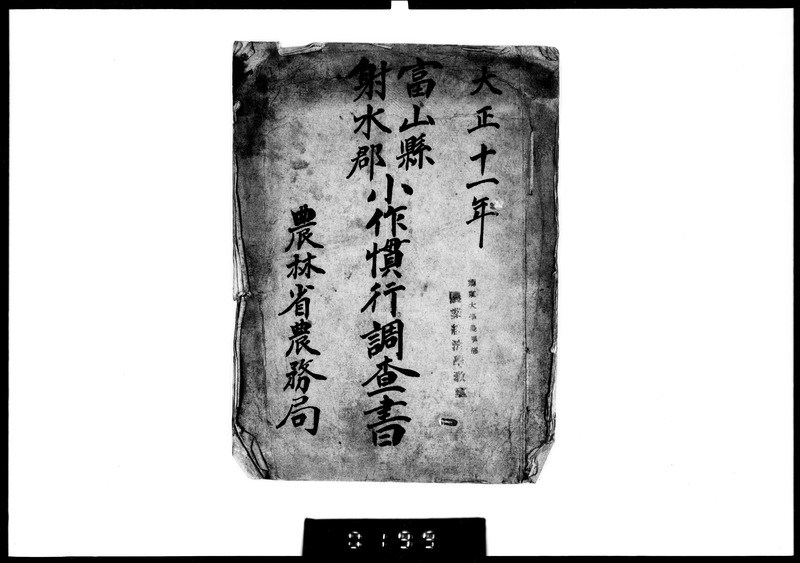 大正十一年
富山縣
射水郡
小作慣行調査書
農林省農務局
農業經濟學教室
0199